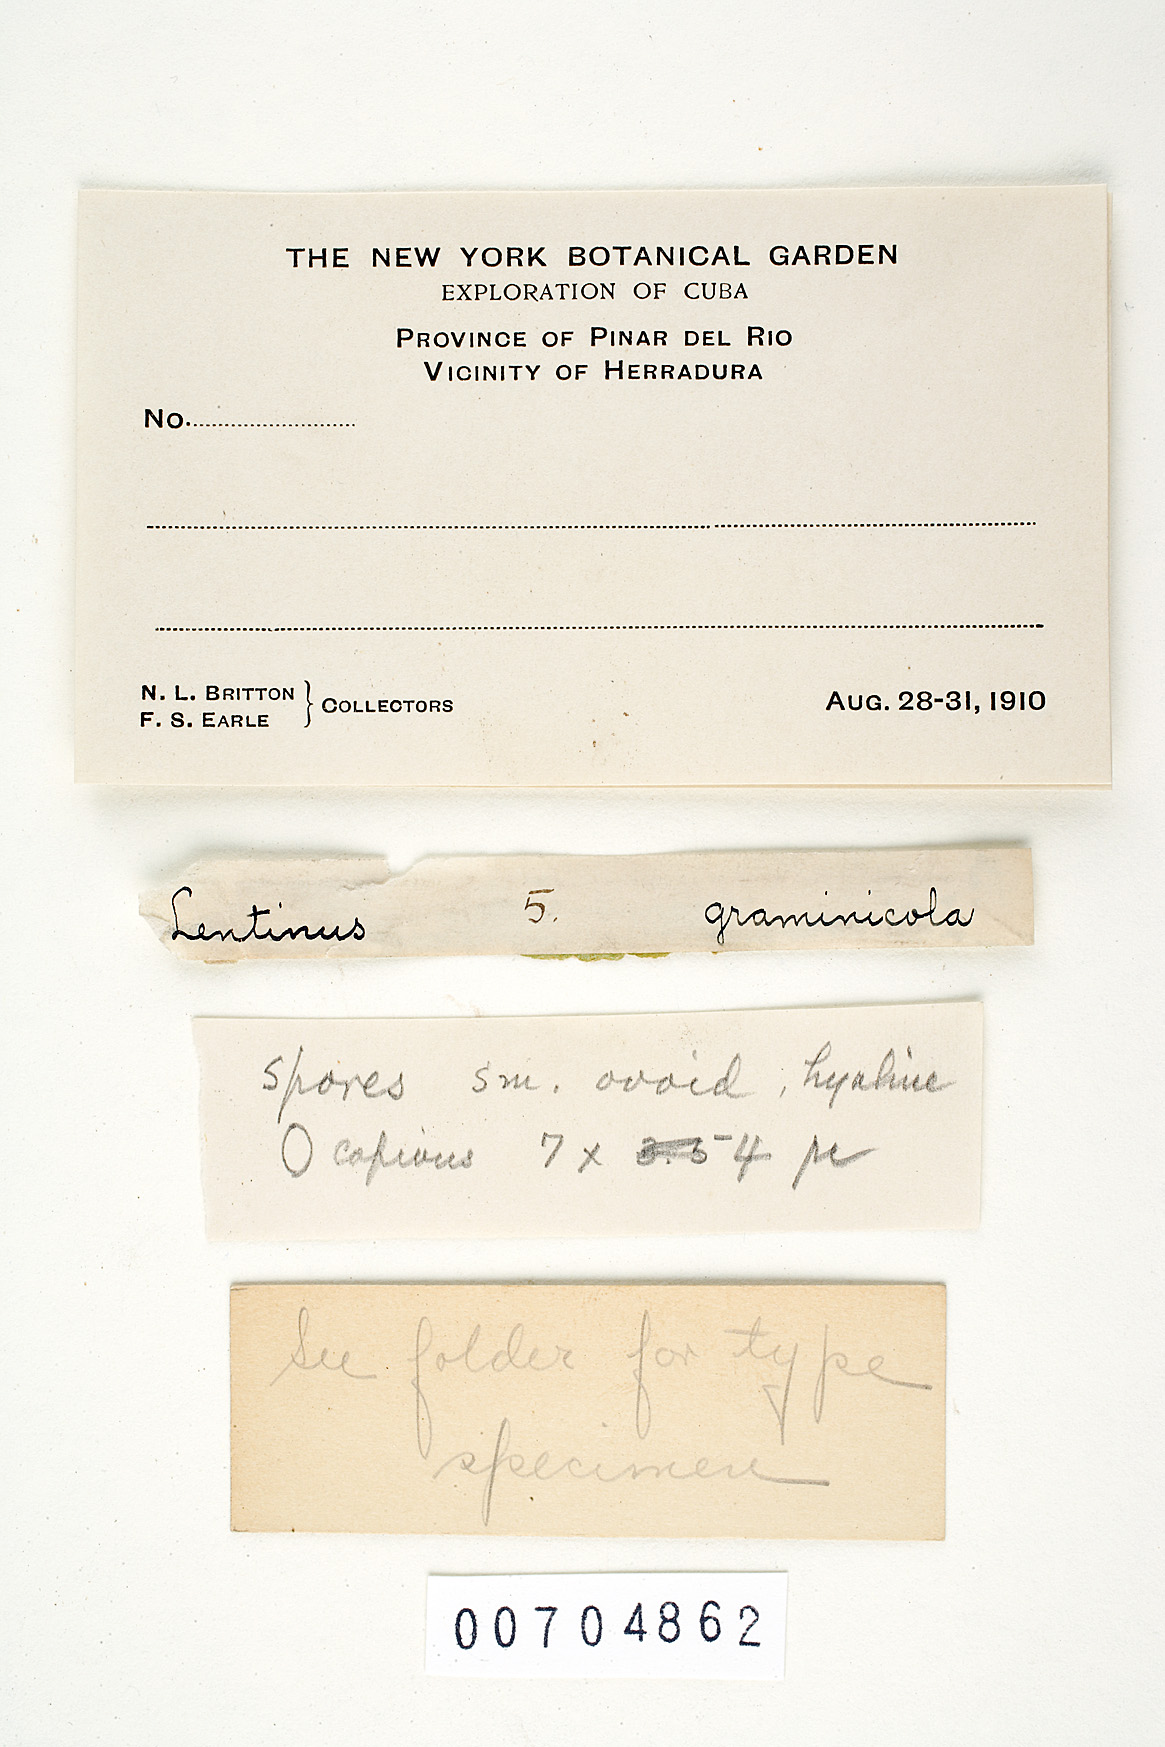 THE NEW YORK BOTANICAL GARDEN
EXPLORATION OF CUBA
PROVINCE OF PINAR DEL RIO
VICINITY OF HERRADURA
No.
N. L. BRITTON
F. S. EARLE } COLLECTORS
AUG. 28-31, 1910
Lentinus 5. graminicola
Spores sm. ovoid, hyaline
copious 7 x 3.5 4 μ
See folder for type
specimen
00704862